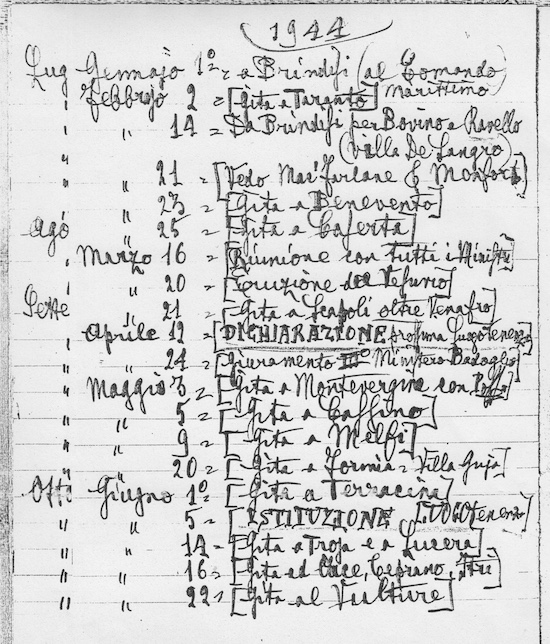 1944
Lug Gennajo 1º = a Brindisi (al Comando
" Febbrajo 2 = [Gita a Taranto] marittimo)
" " 14 = Da Brindisi per Bovino e Ravello
" (Villa De Sangro)
" " 21 = [Vedo Mac'farlane &
" " 23 = [Gita a Benevento]
Ago " 25 = [Gita a Caserta]
" Marzo 16 = [Riunione con tutti i Ministri]
" " 20 = [Eruzione del Vesuvio]
Sette " 21 = [Gita a Scapoli oltre Venafro]
" Aprile 12 = [DICHIARAZIONE prossima Luogotenenza
" " 24 = [Giuramento IIIº Ministero Badoglio]
" Maggio 3 = [Gita a Montevergine con
" " 5 = [Gita a Cassino]
" " 9 = [Gita a Melfi]
" " 20 = [Gita a Formia = Villa
Otto Giugno 1º = [Gita a Terracina]
" " 5 = [ISTITUZIONE LUOGOtenenza]
" " 14 = [Gita a Troja e a Lucera]
" " 16 = [Gita ad Ceprano,
" " 22 = [Gita al Vulture]